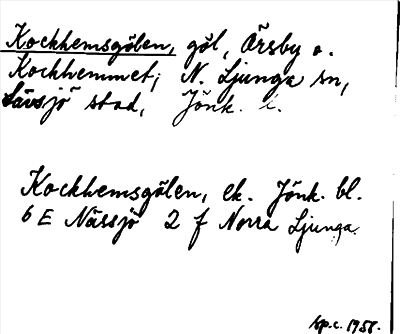 Kockhemsgölen, göl, Örsby o.
Kockhemmet; N. Ljunga sn,
Sävsjö stad, Jönk. l.
Kockhemsgölen, ek. Jönk. bl.
6 E Nässjö 2 f Norra Ljunga.
1958.